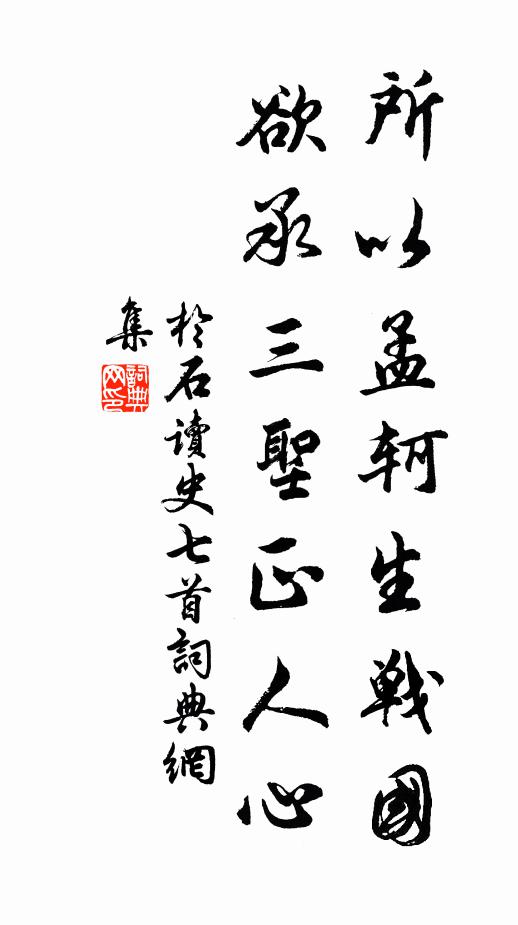 所以孟軻生戦國
欲承三聖正人心
於石讀史七首詞典網
集
詞典網印